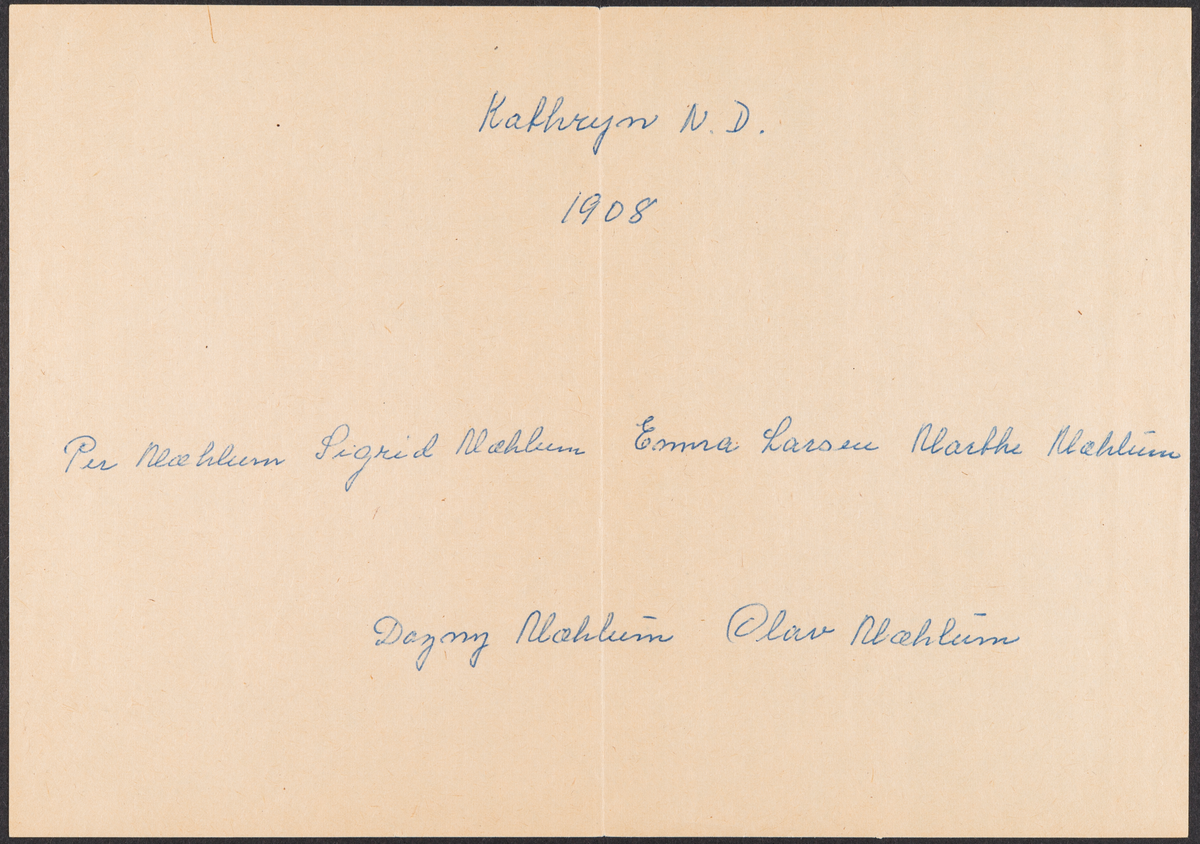 Kathryn N. D.
1908
Per Mæhlum Sigrid Mæhlum Emma Larsen Marthe Mæhlum
Dagny Mæhlum Olav Mæhlum